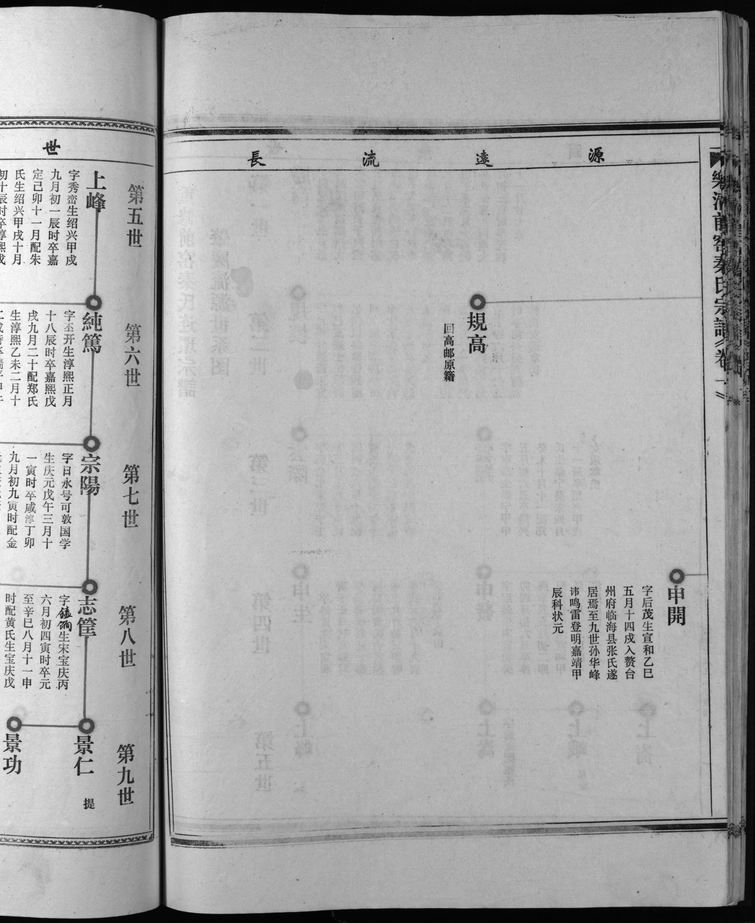 樂清前窑秦氏宗譜 卷一
源遠流長
申開
字后茂生宣和乙巳
五月十四戌入赘台
州府临海县张氏遂
居焉至九世孙华峰
讳鸣雷登明嘉靖甲
辰科状元
規高
回高邮原籍
世
第五世
上峰
字秀峦生绍兴甲戌
九月初一辰时卒嘉
定己卯十一月配朱
氏生绍兴甲戌十月
初十辰时卒淳熙戌
第六世
純篤
字丕开生淳熙正月
十八辰时卒嘉熙戌
戌九月二十配郑氏
生淳熙乙未二月十
第七世
宗陽
字日永号可敦国学
生庆元戊午三月十
一寅时卒咸淳丁卯
九月初九寅时配金
第八世
志筐
生宋宝庆丙
六月初四寅时卒元
至辛巳八月十一申
时配黄氏生宝庆戊
第九世
景仁
提
景功